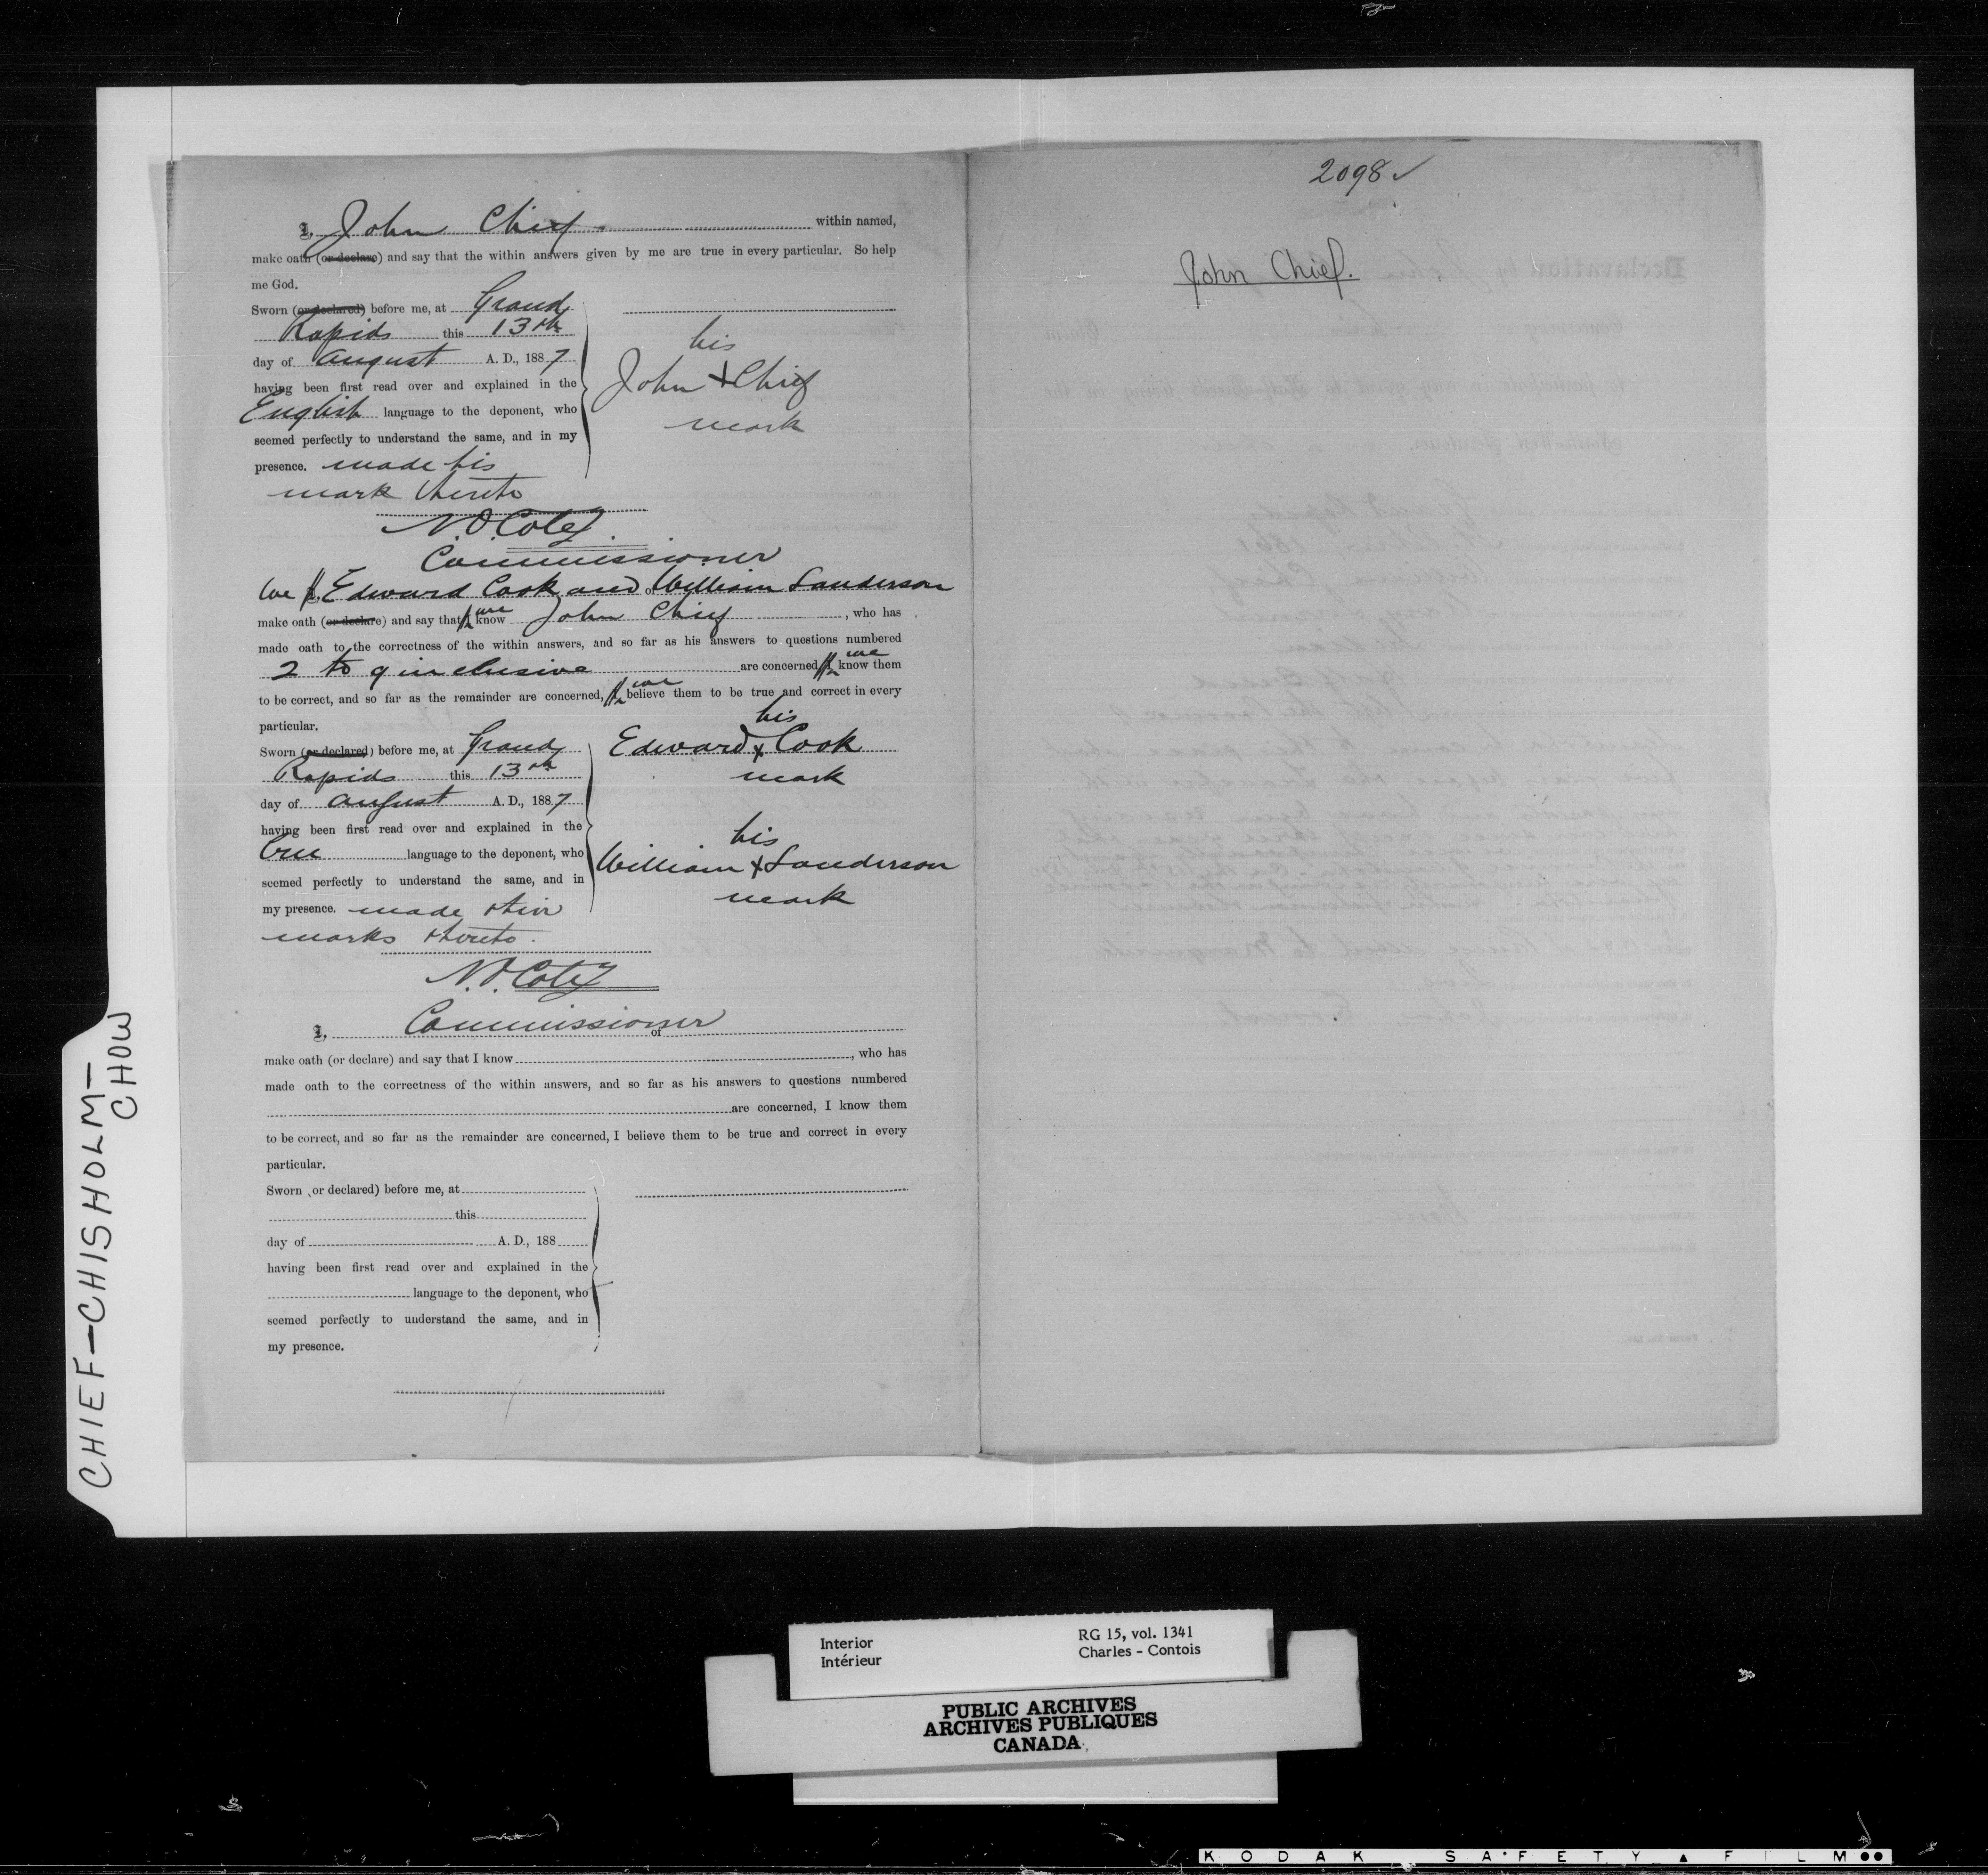 2098 ✓
John Chief.
I, John Chief. within named,
make oath (or declare) and say that the within answers given by me are true in every particular. So help
me God.
Sworn (or declared) before me, at Grand
Rapids this 13th
day of August A. D., 1887
having been first read over and explained in the
English language to the deponent, who
seemed perfectly to understand the same, and in my
presence. made his
mark thereto
his
John + Chief
mark
N.O. Coté
Commissioner
We I, Edward Cook and of William Sanderson
make oath (or declare) and say that I we know John Chief, who has
made oath to the correctness of the within answers, and so far as his answers to questions numbered
2 to 9 inclusive are concerned, I we know them
to be correct, and so far as the remainder are concerned, I we believe them to be true and correct in every
particular.
Sworn (or declared) before me, at Grand
Rapids this 13th
day of August A. D., 1887
having been first read over and explained in the
Cree language to the deponent, who
seemed perfectly to understand the same, and in
my presence. made their
marks thereto.
his
Edward x Cook
mark
his
William x Sanderson
mark
N.O. Coté
Commissioner
I, of
make oath (or declare) and say that I know, who has
made oath to the correctness of the within answers, and so far as his answers to questions numbered
are concerned, I know them
to be correct, and so far as the remainder are concerned, I believe them to be true and correct in every
particular.
Sworn (or declared) before me, at
this
day of A. D., 188
having been first read over and explained in the
language to the deponent, who
seemed perfectly to understand the same, and in
my presence.
CHIEF-CHISHOLM-
CHOW
Interior
Intérieur
RG 15, vol. 1341
Charles - Contois
PUBLIC ARCHIVES
ARCHIVES PUBLIQUES
CANADA
KODAK SAFETY FILM